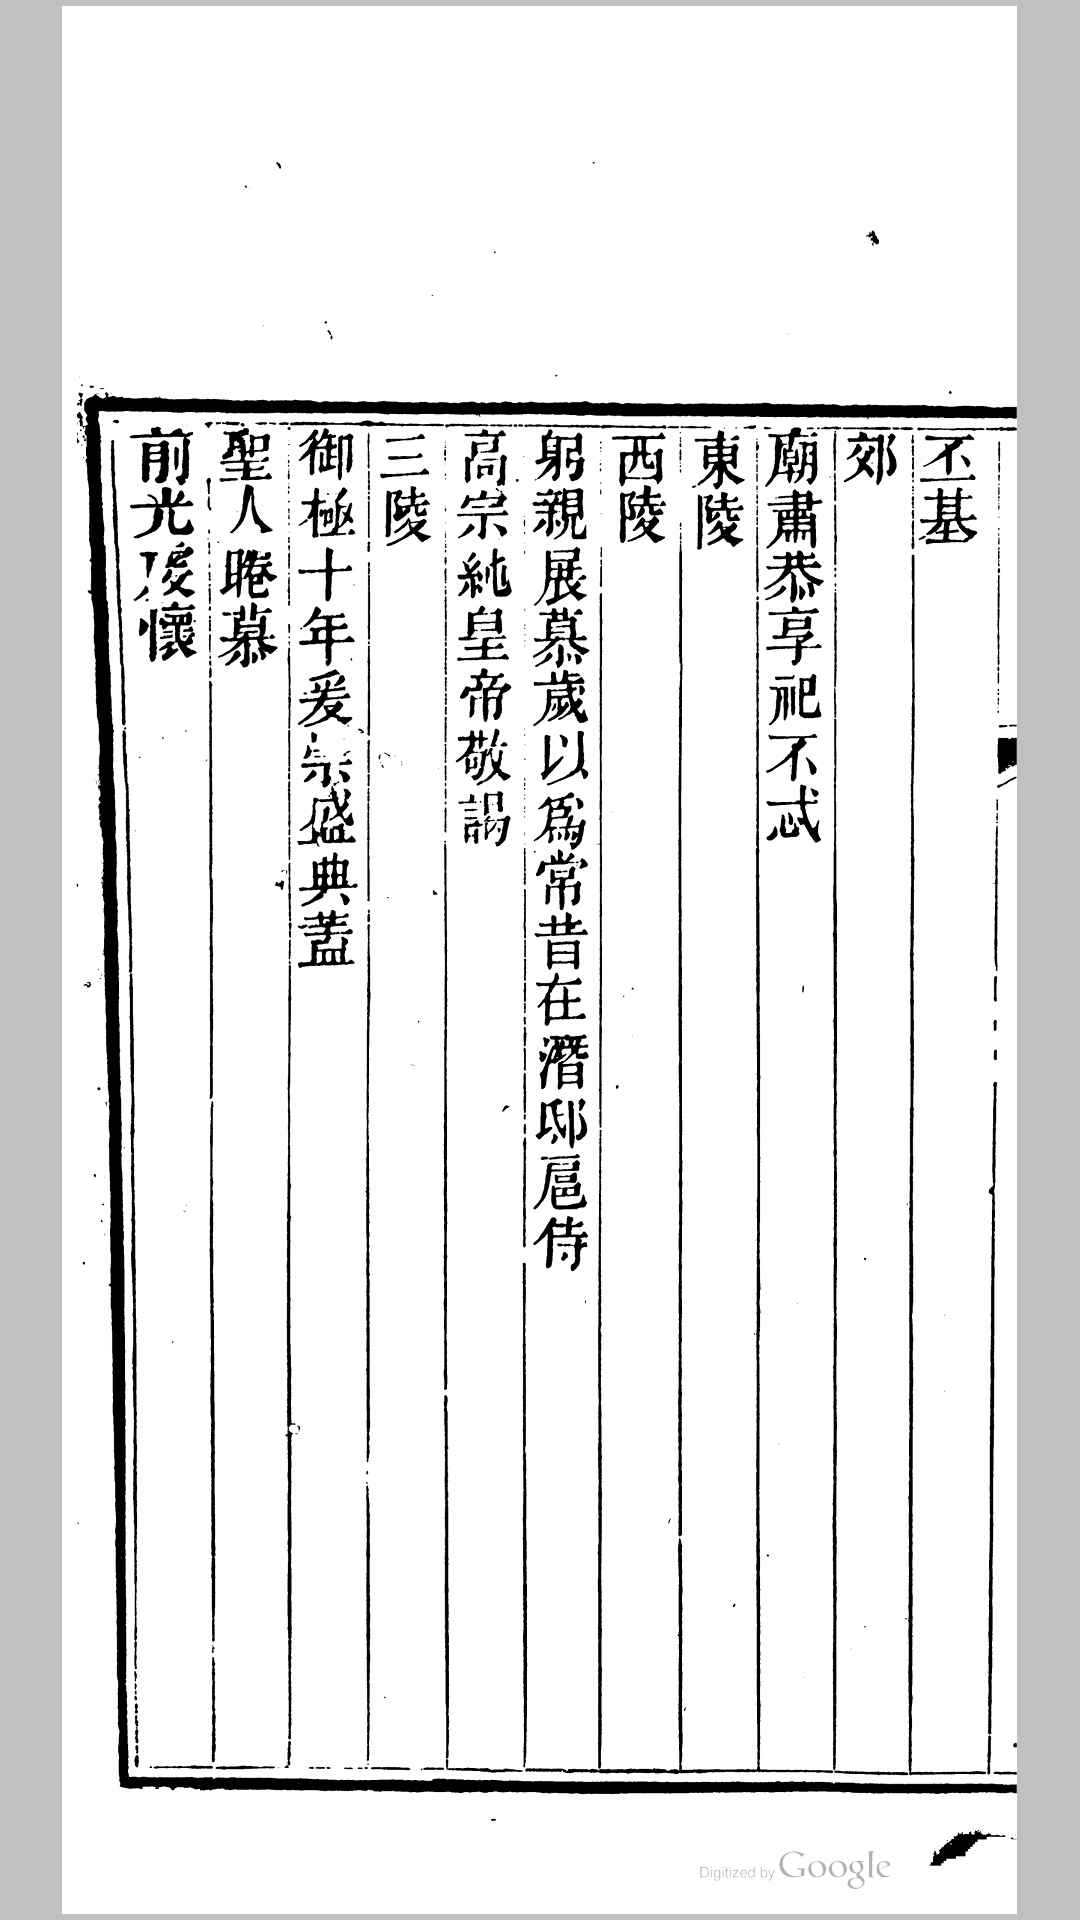 丕基
郊
廟肅恭享祀不忒
東陵
西陵
躬親展慕歲以爲常昔在潛邸扈侍
高宗純皇帝敬謁
三陵
御極十年爰崇盛典蓋
聖人睠慕
前光夐懷
Digitized by Google